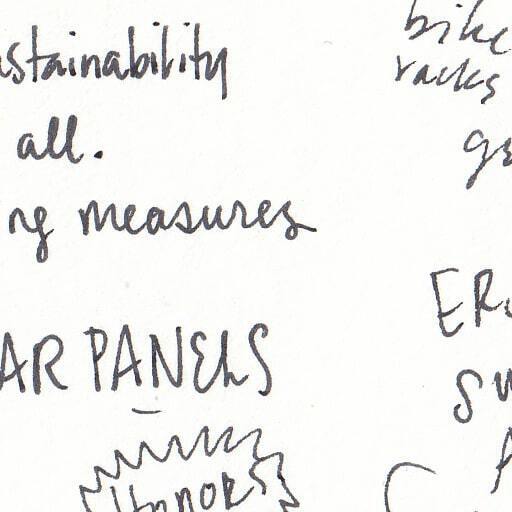 stainability
all.
ng measures
AR PANELS
HONORS
bike
racks